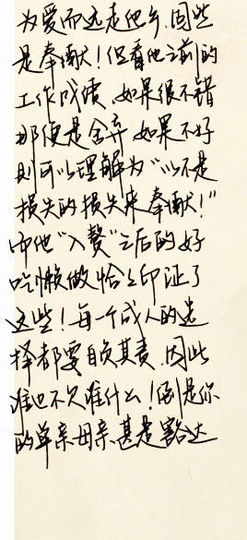 为爱而远走他乡,固然
是奉献!但看他之前的
工作成绩,如果很不错
那便是舍弃,如果不好
则可以理解为“以不是
损失的损失来奉献!”
而他“入赘”之后的好
吃懒做恰恰印证了
这些!每一个成人的选
择都要自负其责,因此
谁也不欠谁什么!倒是你
的单亲母亲,甚是豁达